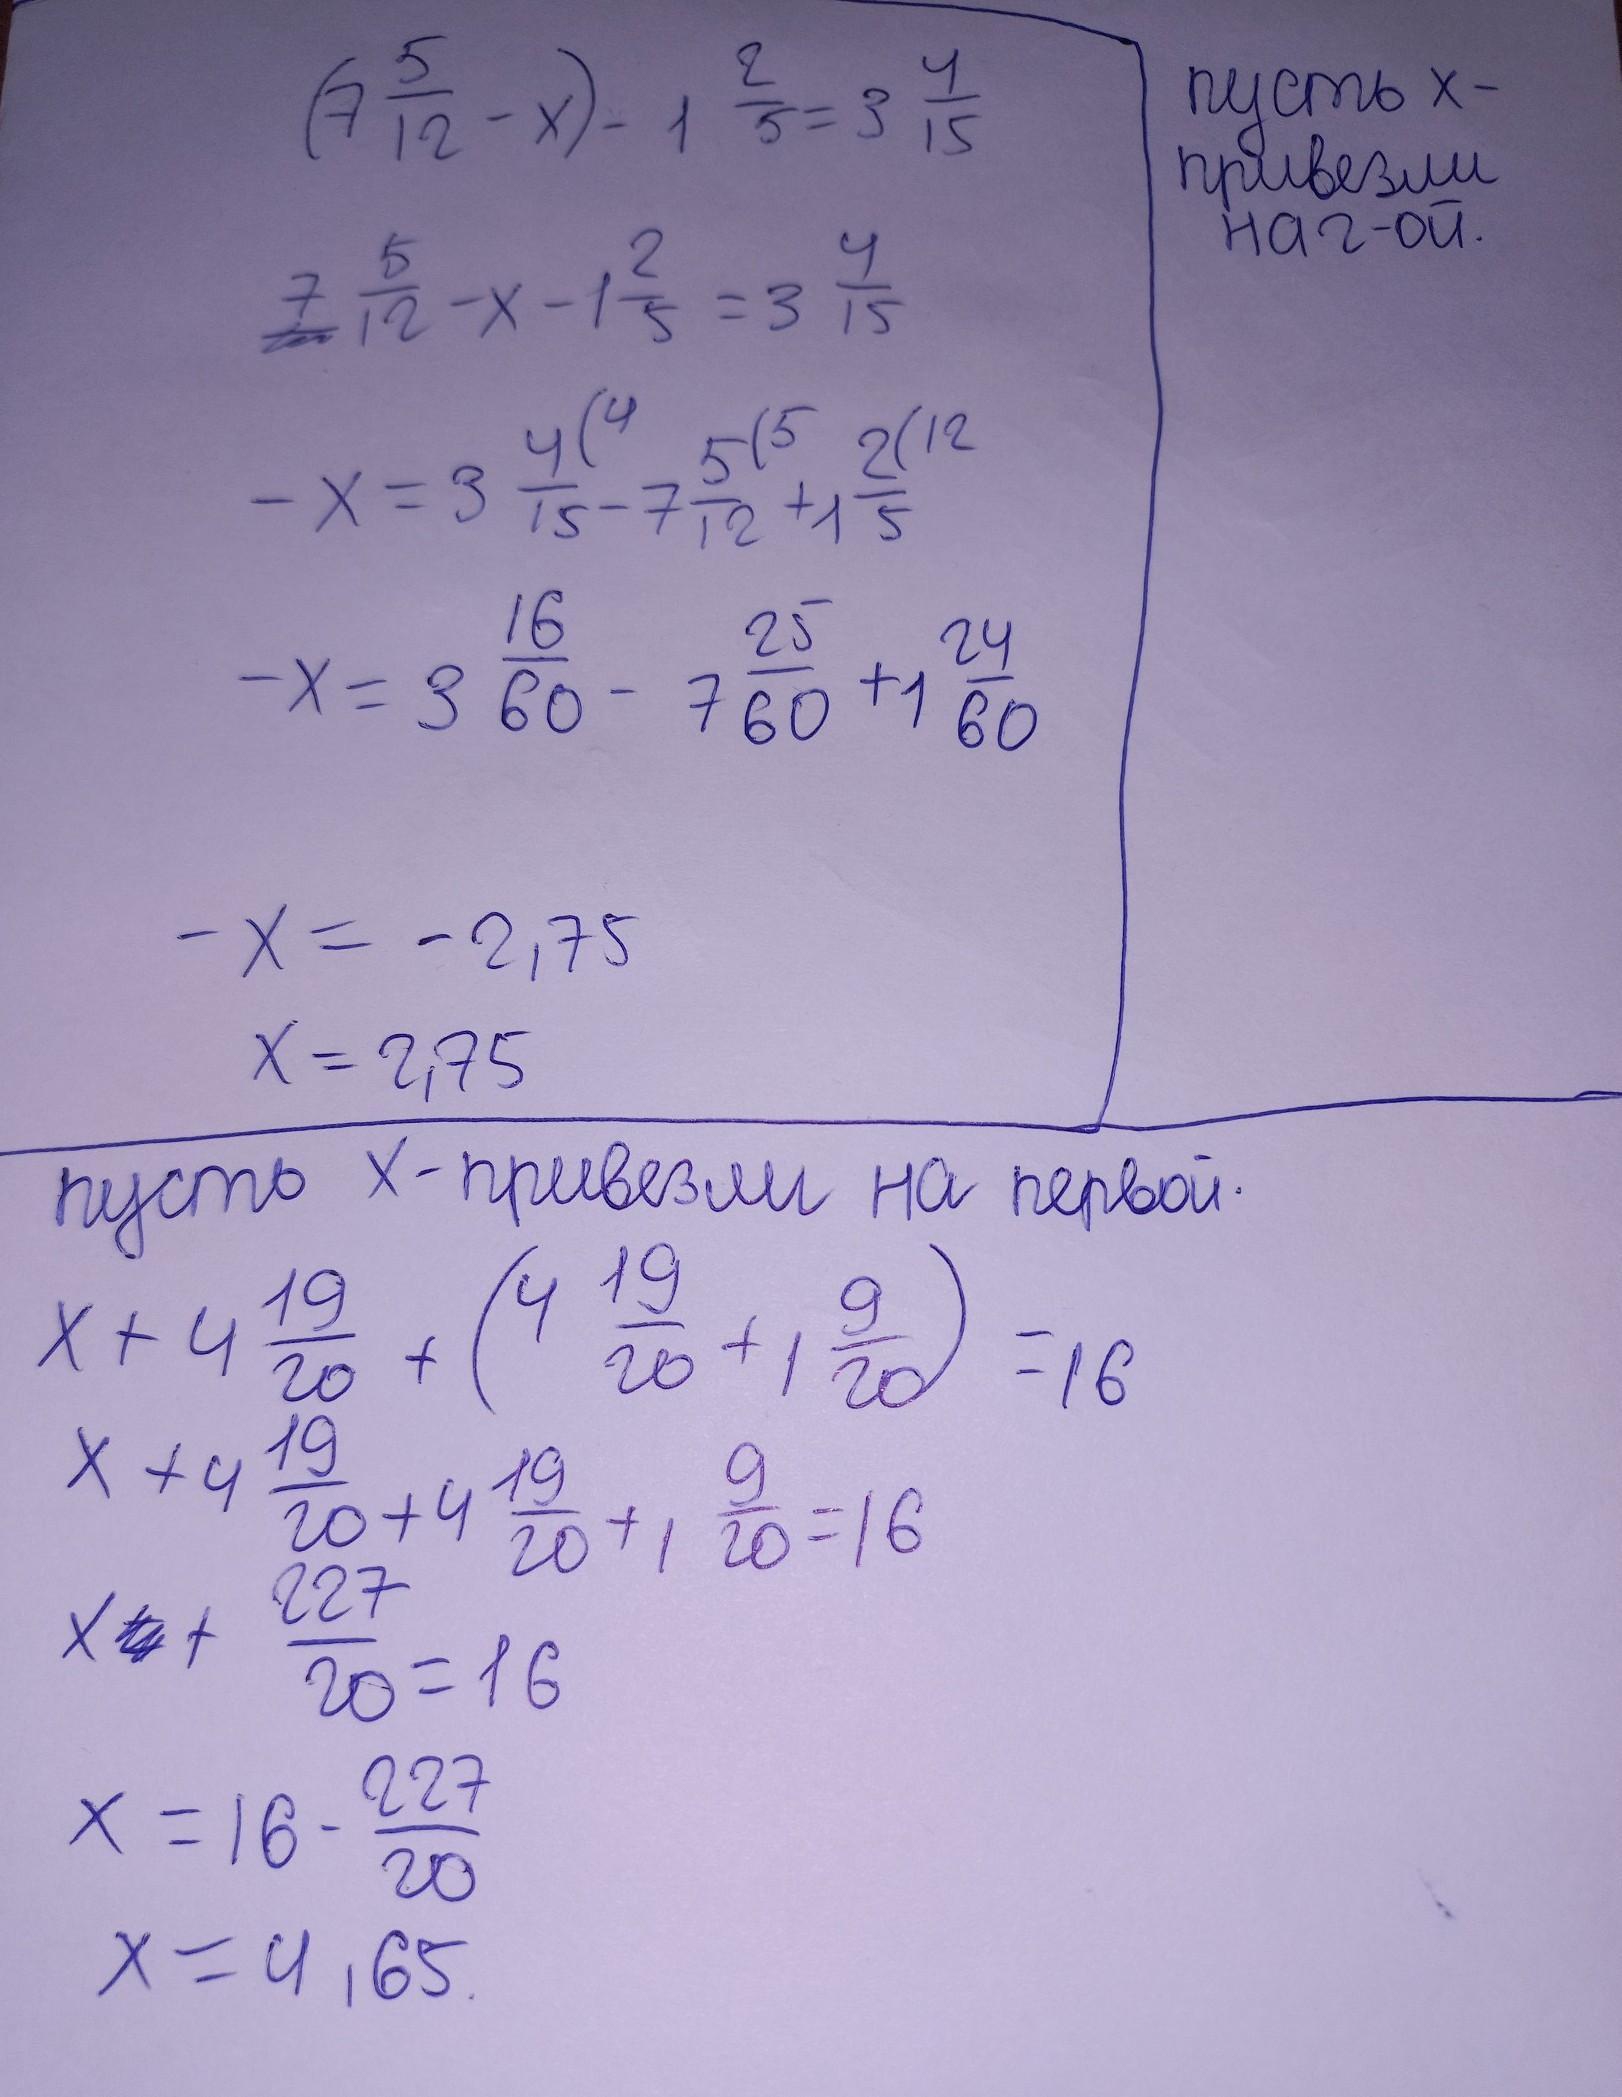 (7 5/12 - x) - 1 2/5 = 3 4/15
7 5/12 - x - 1 2/5 = 3 4/15
- x = 3 4/15 (4 - 7 5/12 (5 + 1 2/5 (12
- x = 3 16/60 - 7 25/60 + 1 24/60
- x = - 2,75
x = 2,75
пусть x -
привезли
на 2-ой.
пусть x - привезли на первой.
x + 4 19/20 + (4 19/20 + 1 9/20) = 16
x + 4 19/20 + 4 19/20 + 1 9/20 = 16
x + 227/20 = 16
x = 16 - 227/20
x = 4,65.